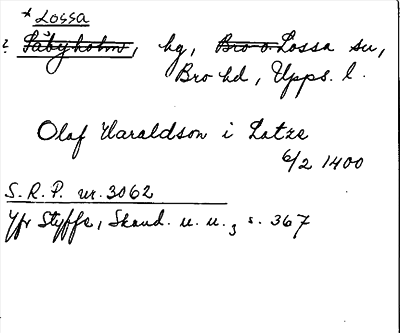 * Lossa
? Säbyholm, hg, Bro o. Lossa su,
Bro hd, Upps. l.
Olaf Haraldson i Lotze
6/2 1400
S.R.P. nr. 3062
Yfr Styffe, Skand. u. u., s. 367